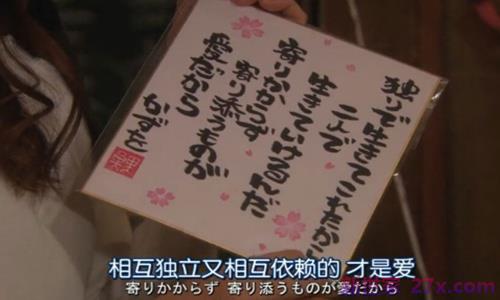 独りで生きてこれたから
二人で
生きていけるんだ
寄りかからず
寄り添うものが
愛だから
かずを
相互独立又相互依赖的 才是爱
寄りかからず 寄り添うものが愛だから
27x.com